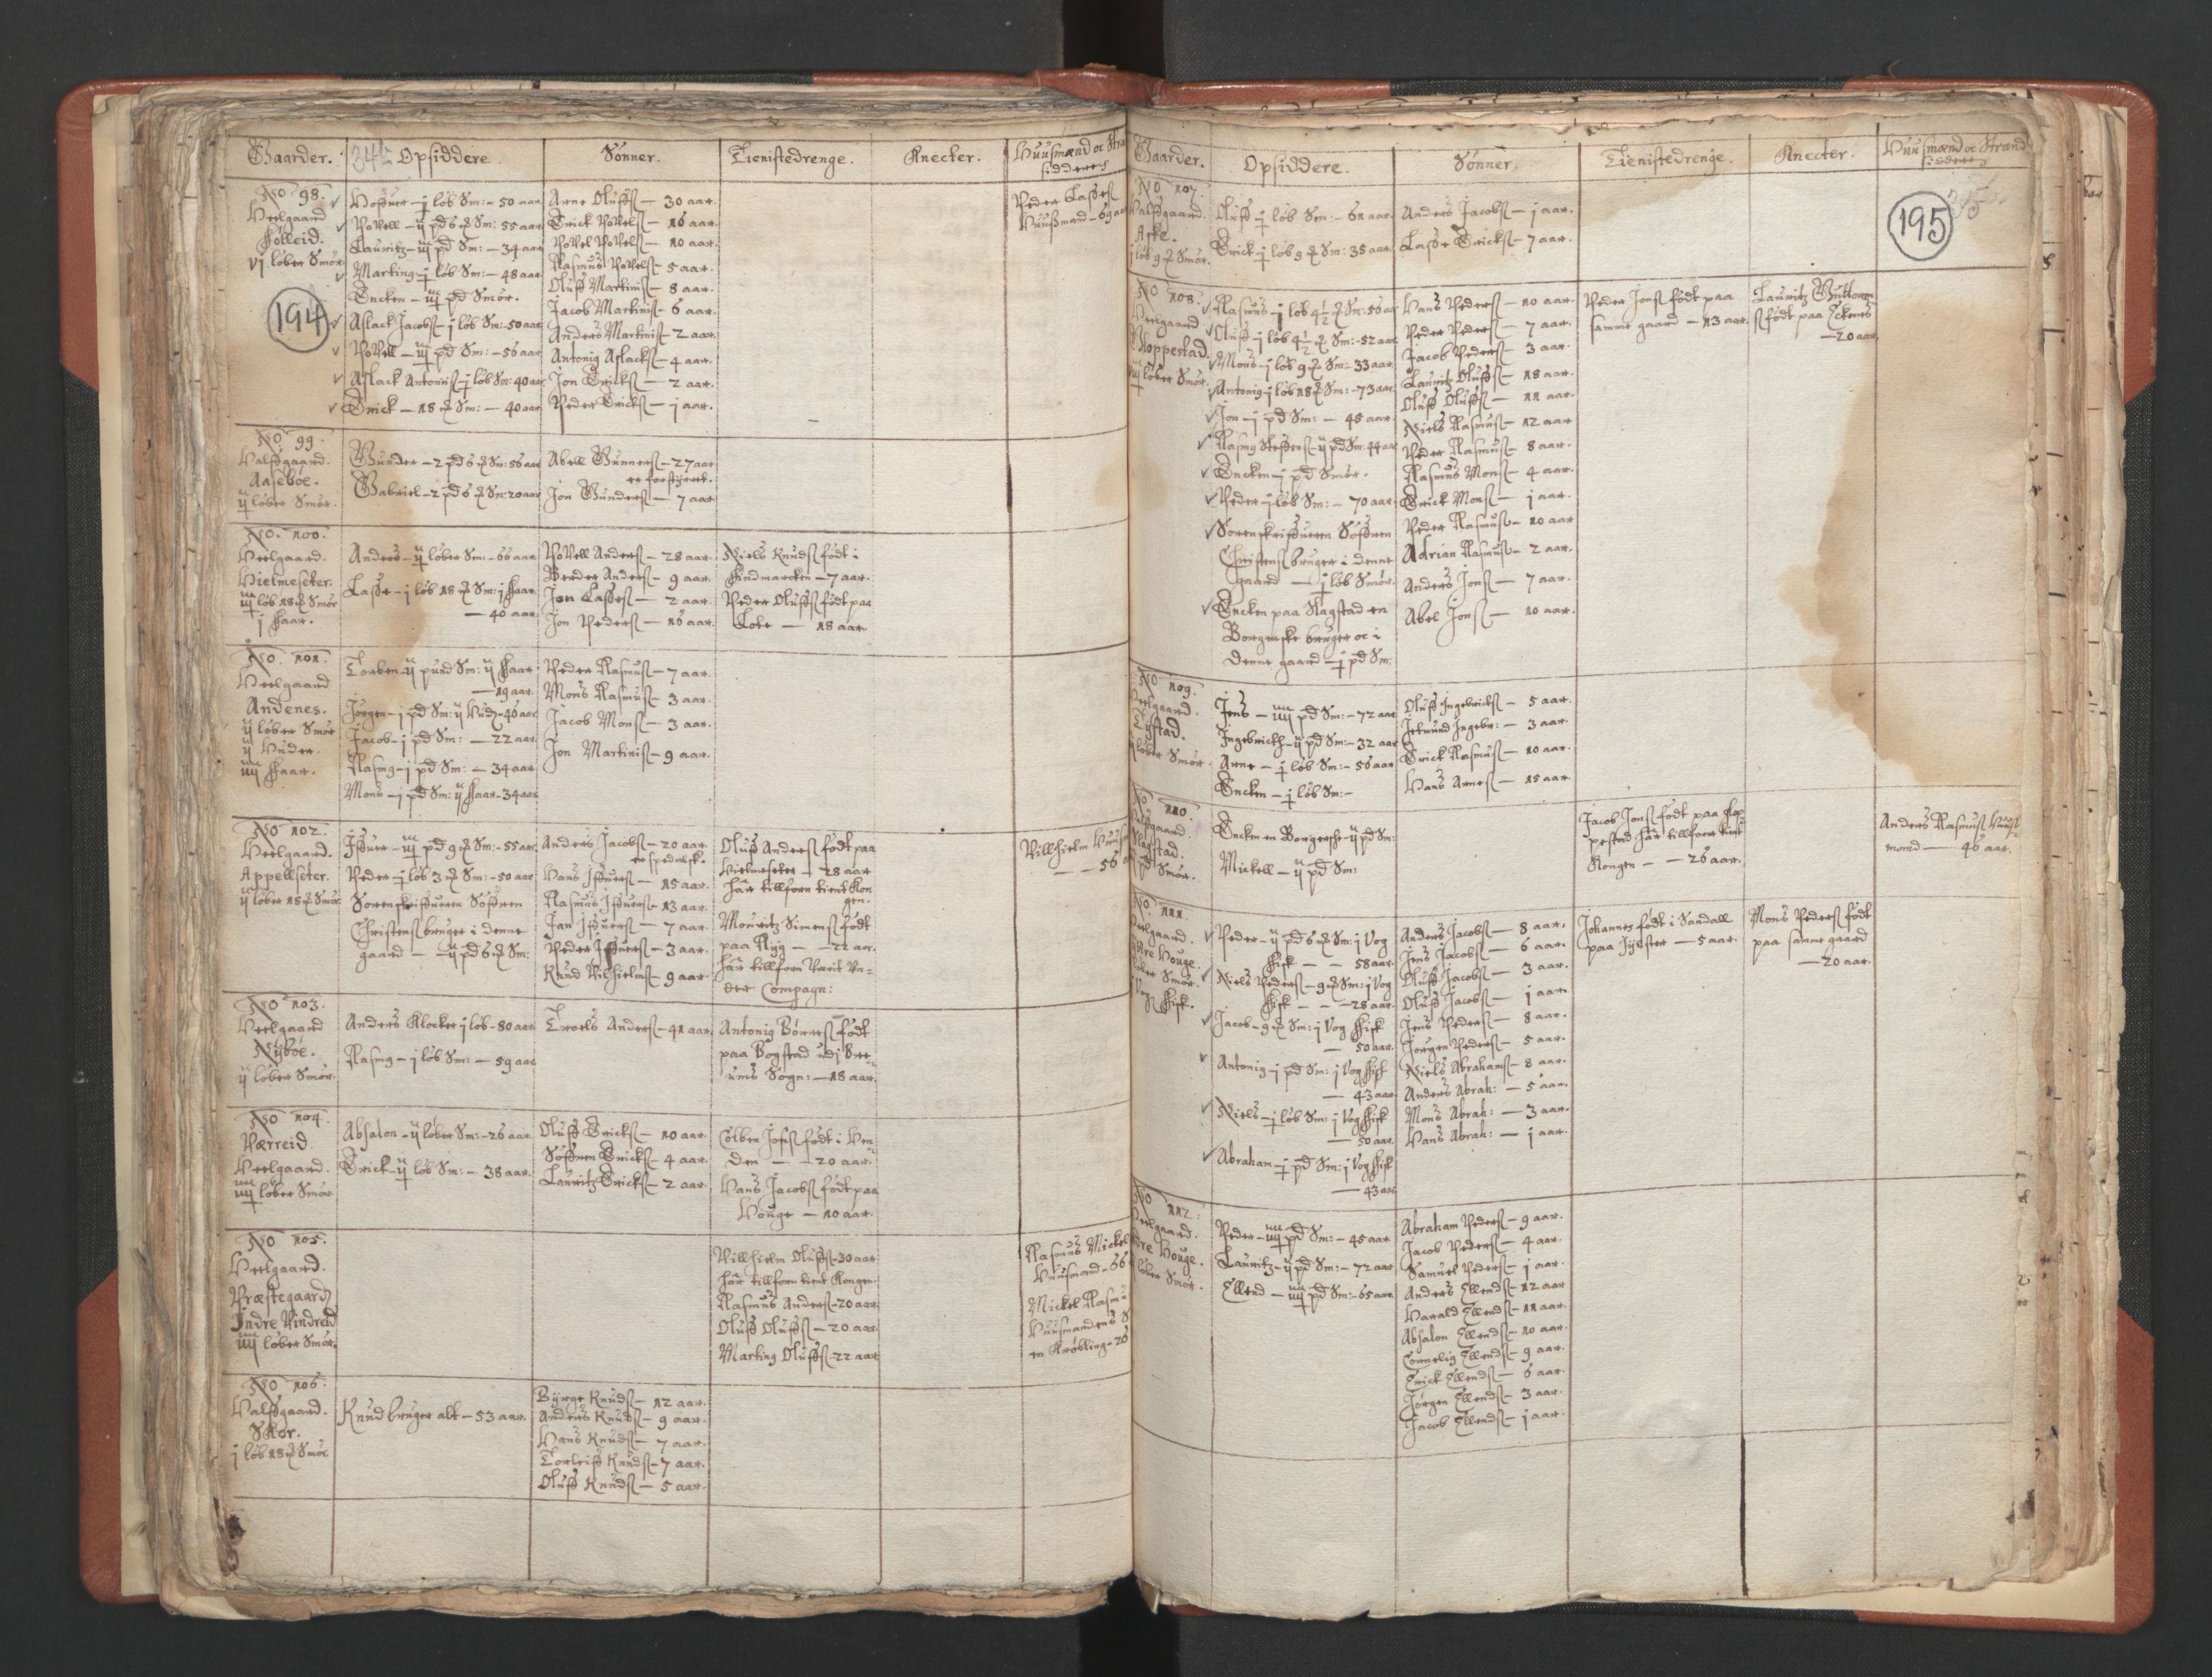 Gaarder. Opsiddere Sönner. Tienistedrenge. Knecter. Huusmænd oc Stra
sidderes
No 98.
Heelgaard
vj löber Smör
194
Hoffuer - löb Sm: - 50 aar
Powell - ij pd 6 Sm: 55 aar
Lauritz - pd Sm: - 34 aar
Marting - löb Sm: - 48 aar
Encken - pd Smör.
Aslack Jacobs - j löb Sm: - 50 aar
Powell - pd Sm: - 56 aar
Aslack Antonis - löb Sm: 40 aar
Erick - 18 Sm: - 40 aar
Arne Oluffs - 30 aar.
Erick Powels - 16 aar.
Powel Powels - 10 aar.
Rasmus Powels - 5 aar.
Oluff Martinis - 8 aar.
Jacob Martinis - 6 aar.
Anders Martinis - 2 aar.
Antonig Aslacks - 4 aar.
Jon Ericks - 2 aar.
Peder Ericks - j aar.
Peder Lasses
Huusmand - 69 aar
No 99.
Halffgaard.
Aaseböe.
ij löber Smör.
Gunder - 2 pd 6 Sm: 56 aar
Gabriel - 2 pd 6 Sm: 20 aar
Abell Gunners - 27 aar
er forstyrret.
Jon Gunders - 7 aar
No. 100.
Heelgaard.
Hielmeseter.
löb 18 Smör
j faar.
Anders - ij löber Sm: - 66 aar
Lasse - j löb 18 Sm: j faar
- 40 aar.
Powell Anders - 28 aar.
Berder Anders - 9 aar.
Jon Lasses - 2 aar.
Jon Peders - 16 aar.
Niels Knuds födt i
Findmarcken - 7 aar.
Peder Oluffs födt paa
Lote - 18 aar.
No. 101.
Heelgaard
Andenes.
ij löber Smör
ij Huder.
faar.
Torben - ij pund Sm: ij faar
- 19 aar.
Jörgen - j pd Sm: ij Hud - 46 aar
Jacob - j pd Sm: - 22 aar
Rasmg - j pd Sm: - 34 aar
Mons - j pd Sm: ij faar - 34 aar
Peder Rasmus - 7 aar.
Mons Rasmus - 3 aar.
Jacob Mons - 3 aar.
Jon Martinis - 9 aar.
No 102.
Heelgaard.
Appellseter.
ij löber 18 Smör
Iffuer - pd 9 Sm: - 55 aar
Peder - löb 3 Sm: - 50 aar
Sorenskriffueren Söffren
Christens bruger i denne
gaard - ij pd 6 Sm:
Anders Jacobs - 20 aar.
er spedalsk.
Hans Iffuers - 15 aar.
Rasmus Iffuers - 13 aar.
Jan Iffuers - 7 aar.
Peder Iffuers - 3 aar.
Knud Vilhielms - 9 aar.
Oluff Anders födt paa
Hielmeseter - 28 aar
har tillforn tient Kon
gen.
Mouritz Simens födt
paa Ryg - 22 aar.
har tillforn Værit Un-
der Compagn:
Villhielm Huus
- 56
No 103.
Heelgaard
Nyböe.
ij löber Smör.
Anders Klocker j löb - 80 aar
Rasmg - j löb Sm: - 59 aar
Troels Anders - 41 aar
Antonig Börres födt
paa Bogstad udj Bre
ums Sogn: - 18 aar.
No 104.
Værreid
Heelgaard.
löber Smör
Absalon - ij löber Sm: - 26 aar
Erick - löb Sm: - 38 aar.
Oluff Ericks - 10 aar.
Söffren Ericks - 4 aar.
Lauritz Ericks - 2 aar.
Colben födt i
den - 20 aar.
Hans Jacobs födt paa
Houge - 10 aar.
No 105.
Heelgaard.
Præstegaard
Indre Vindreid
löber Smör.
Villhielm Oluffs - 30 aar
har tillforn tient Kongen.
Rasmus Anders - 20 aar
Oluff Oluffs - 20 aar.
Marting Oluffs - 22 aar
Rasmus Mickel
Huusmand - 66
Mickel Rasmu
Huusmandens S
en Kröbling - 26
No 106.
Halffgaard.
Skor.
j löb 18 Smör
Knud bruger alt - 53 aar.
Byrge Knuds - 12 aar.
Anders Knuds - 9 aar.
Hans Knuds - 7 aar.
Torleiff Knuds - 7 aar.
Oluff Knuds - 5 aar.
Gaarder. Opsiddere. Sönner. Tienistedrenge. Knecter. Huusmænd oc Strand
sidderes
195
No 107.
Halffgaard.
Aske.
j löb 9 Smör.
Oluff - löb Sm: - 61 aar
Erick - löb 9 Sm: 35 aar
Anders Jacobs - j aar.
Lasse Ericks - 7 aar.
No 108.
Heelgaard
Kloppestad.
löber Smör.
Rasmus - j löb 4 1/2 Sm: 56 aar
Oluff - j löb 4 1/2 Sm: - 52 aar
Mons - j löb 9 Sm: - 33 aar
Antonig - löb 18 Sm: - 73 aar
Jon - j pd Sm: - 45 aar.
Rasmg Steffens - ij pd Sm: 44 aar
Encken - j pd Smör.
Peder - löb Sm: - 70 aar
Sorenskriffueren Söffren
Christens bruger i denne
gaard - löb Smör.
Encken paa Slagstad en
Borgerske bruger oc i
denne gaard - pd Sm:
Hans Peders - 10 aar.
Peder Peders - 7 aar.
Jacob Peders - 3 aar.
Lauritz Oluffs - 18 aar.
Oluff Oluffs - 11 aar.
Niels Rasmus - 12 aar
Peder Rasmus - 8 aar.
Rasmus Mons - 4 aar.
Erick Mons - j aar.
Peder Rasmus - 10 aar
Adrian Rasmus - 2 aar.
Anders Jons - 7 aar.
Abel Jons - 10 aar.
Peder Jons födt paa
samme gaard - 13 aar.
Lauritz Guttorm
s födt paa Eckenes
- 20 aar
No 109.
Heelgaard.
Tystad.
löber Smör
Jens - pd Sm: - 72 aar
Ingebricht - ij pd Sm: - 32 aar
Arne - löb Sm: - 56 aar
Encken - löb Sm: -
Oluff Ingebricks - 5 aar.
Jetmund Ingebr: - 3 aar.
Erick Rasmus - 10 aar.
Hans Arnes - 15 aar.
No 110.
Halffgaard.
Slagstad.
pd Smör.
Encken en Borgerske - ij pd Sm:
Mickell - ij pd Sm:
Jacob Jons födt paa Klop
pestad har tillforn tient
Kongen - 26 aar.
Anders Rasmus Huus
mand - 40 aar.
No. 111.
Heelgaard.
Houge.
löber Smör.
Vog Fisk.
Peder - ij pd 6 Sm: j Vog
Fisk - 58 aar
Niels Peders - 9 Sm: j Vog
Fisk - 28 aar.
Jacob - 9 Sm: j Vog Fisk
- 50 aar
Antonig - j pd Sm: j Vog Fisk
- 43 aar
Niels - löb Sm: j Vog Fisk
- 50 aar
Abraham - pd Sm: j Vog Fisk
- 43 aar
Anders Jacobs - 8 aar.
Jens Jacobs - 6 aar.
Oluff Jacobs - 3 aar.
Oluff Jacobs - j aar.
Jens Peders - 8 aar.
Jörgen Peders - 5 aar.
Niels Abrahams - 8 aar.
Anders Abrah: - 5 aar.
Mons Abrah: - 3 aar.
Hans Abrah: - j aar.
Johannes födt i Sandall
paa - 5 aar.
Mons Peders födt
paa samme gaard
- 20 aar.
No 112.
Heelgaard.
Houge.
löber Smör.
Peder - pd Sm: - 45 aar
Lauritz - ij pd Sm: - 72 aar
Ellend - pd Sm: - 65 aar
Abraham Peders - 9 aar.
Jacob Peders - 4 aar.
Samuel Peders - j aar.
Anders Ellends - 12 aar
Harald Ellends - 11 aar.
Absalon Ellends - 10 aar.
Cornelig Ellends - 9 aar.
Erick Ellends - 6 aar.
Jörgen Ellends - 3 aar.
Jacob Ellends - j aar.